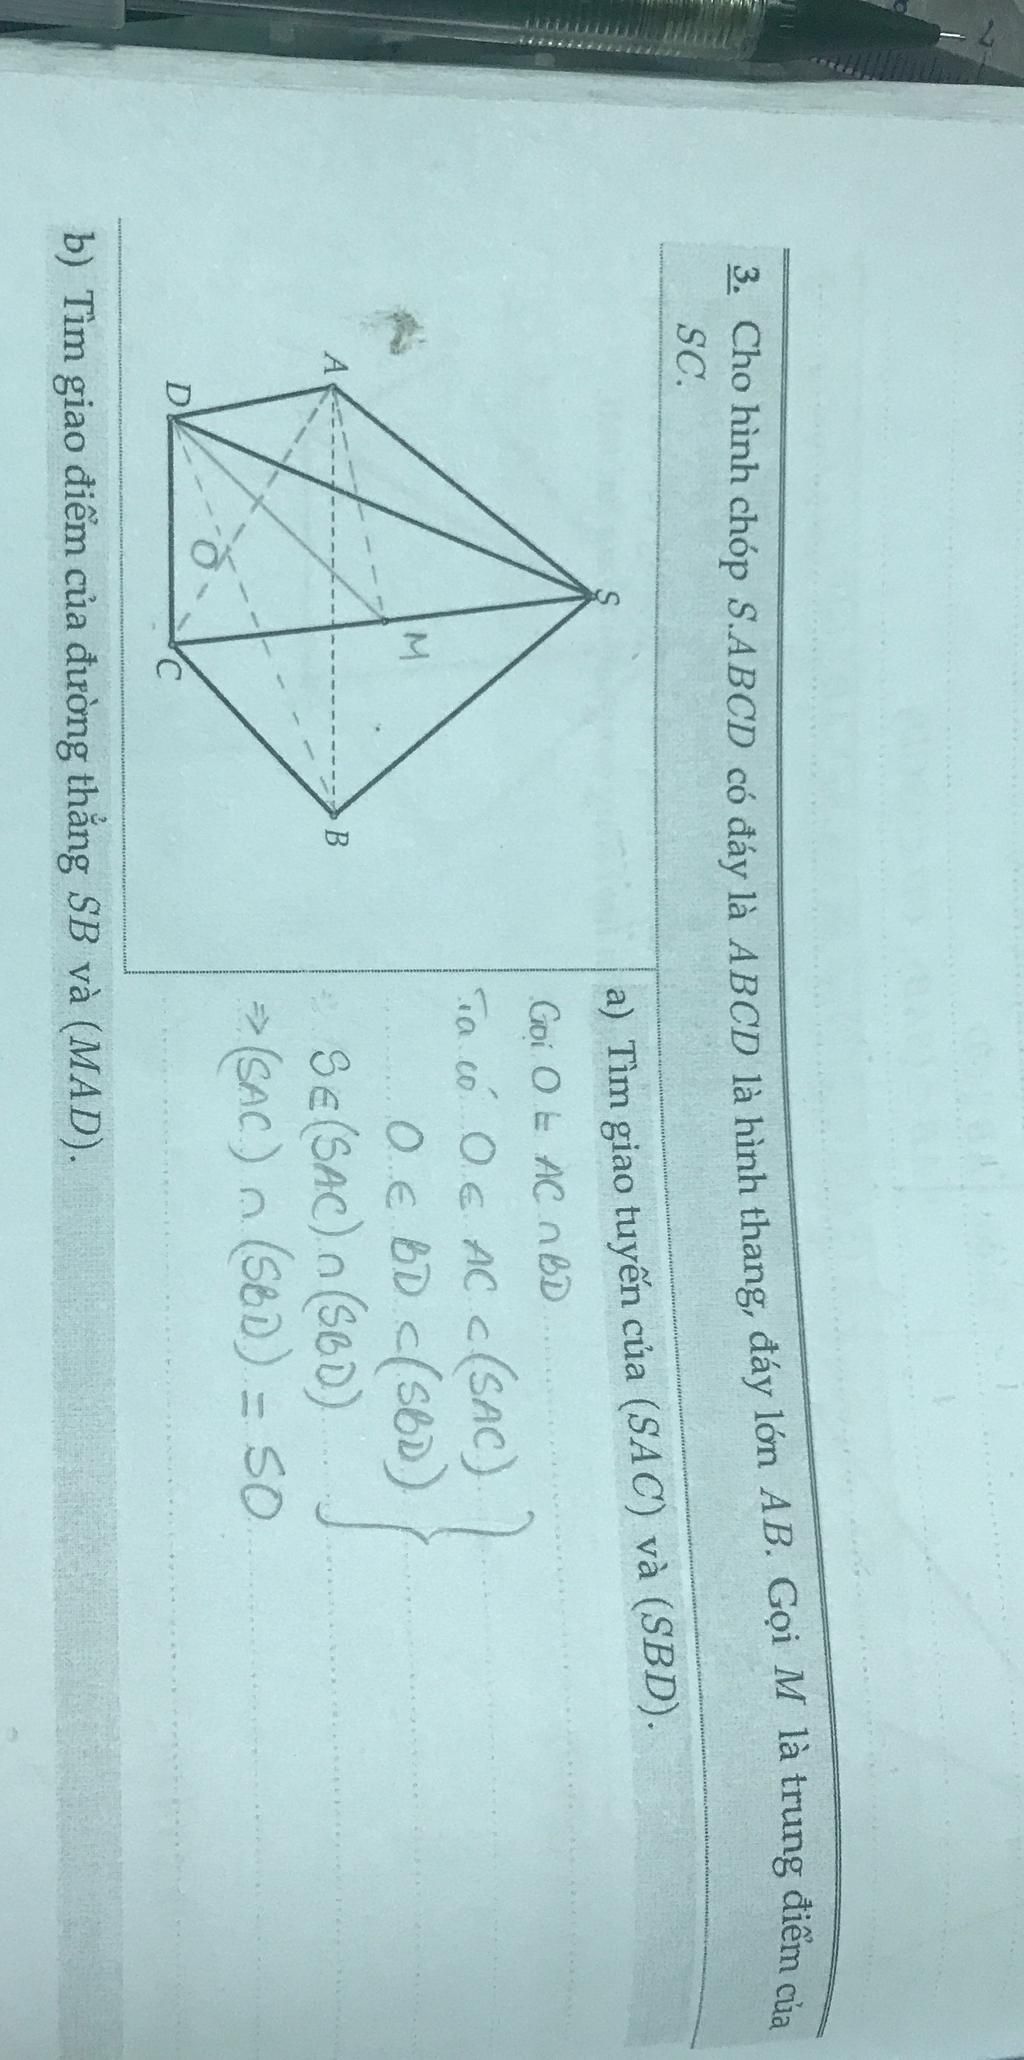 3. Cho hình chóp S.ABCD có đáy là ABCD là hình thang, đáy lớn AB. Gọi M là trung điểm của
SC.
a) Tìm giao tuyến của (SAC) và (SBD).
Gọi O = AC ∩ BD
Ta có O ∈ AC ⊂ (SAC)
O ∈ BD ⊂ (SBD)
S ∈ (SAC) ∩ (SBD)
⇒ (SAC) ∩ (SBD) = SO
S
A
M
B
O
D
C
b) Tìm giao điểm của đường thẳng SB và (MAD).